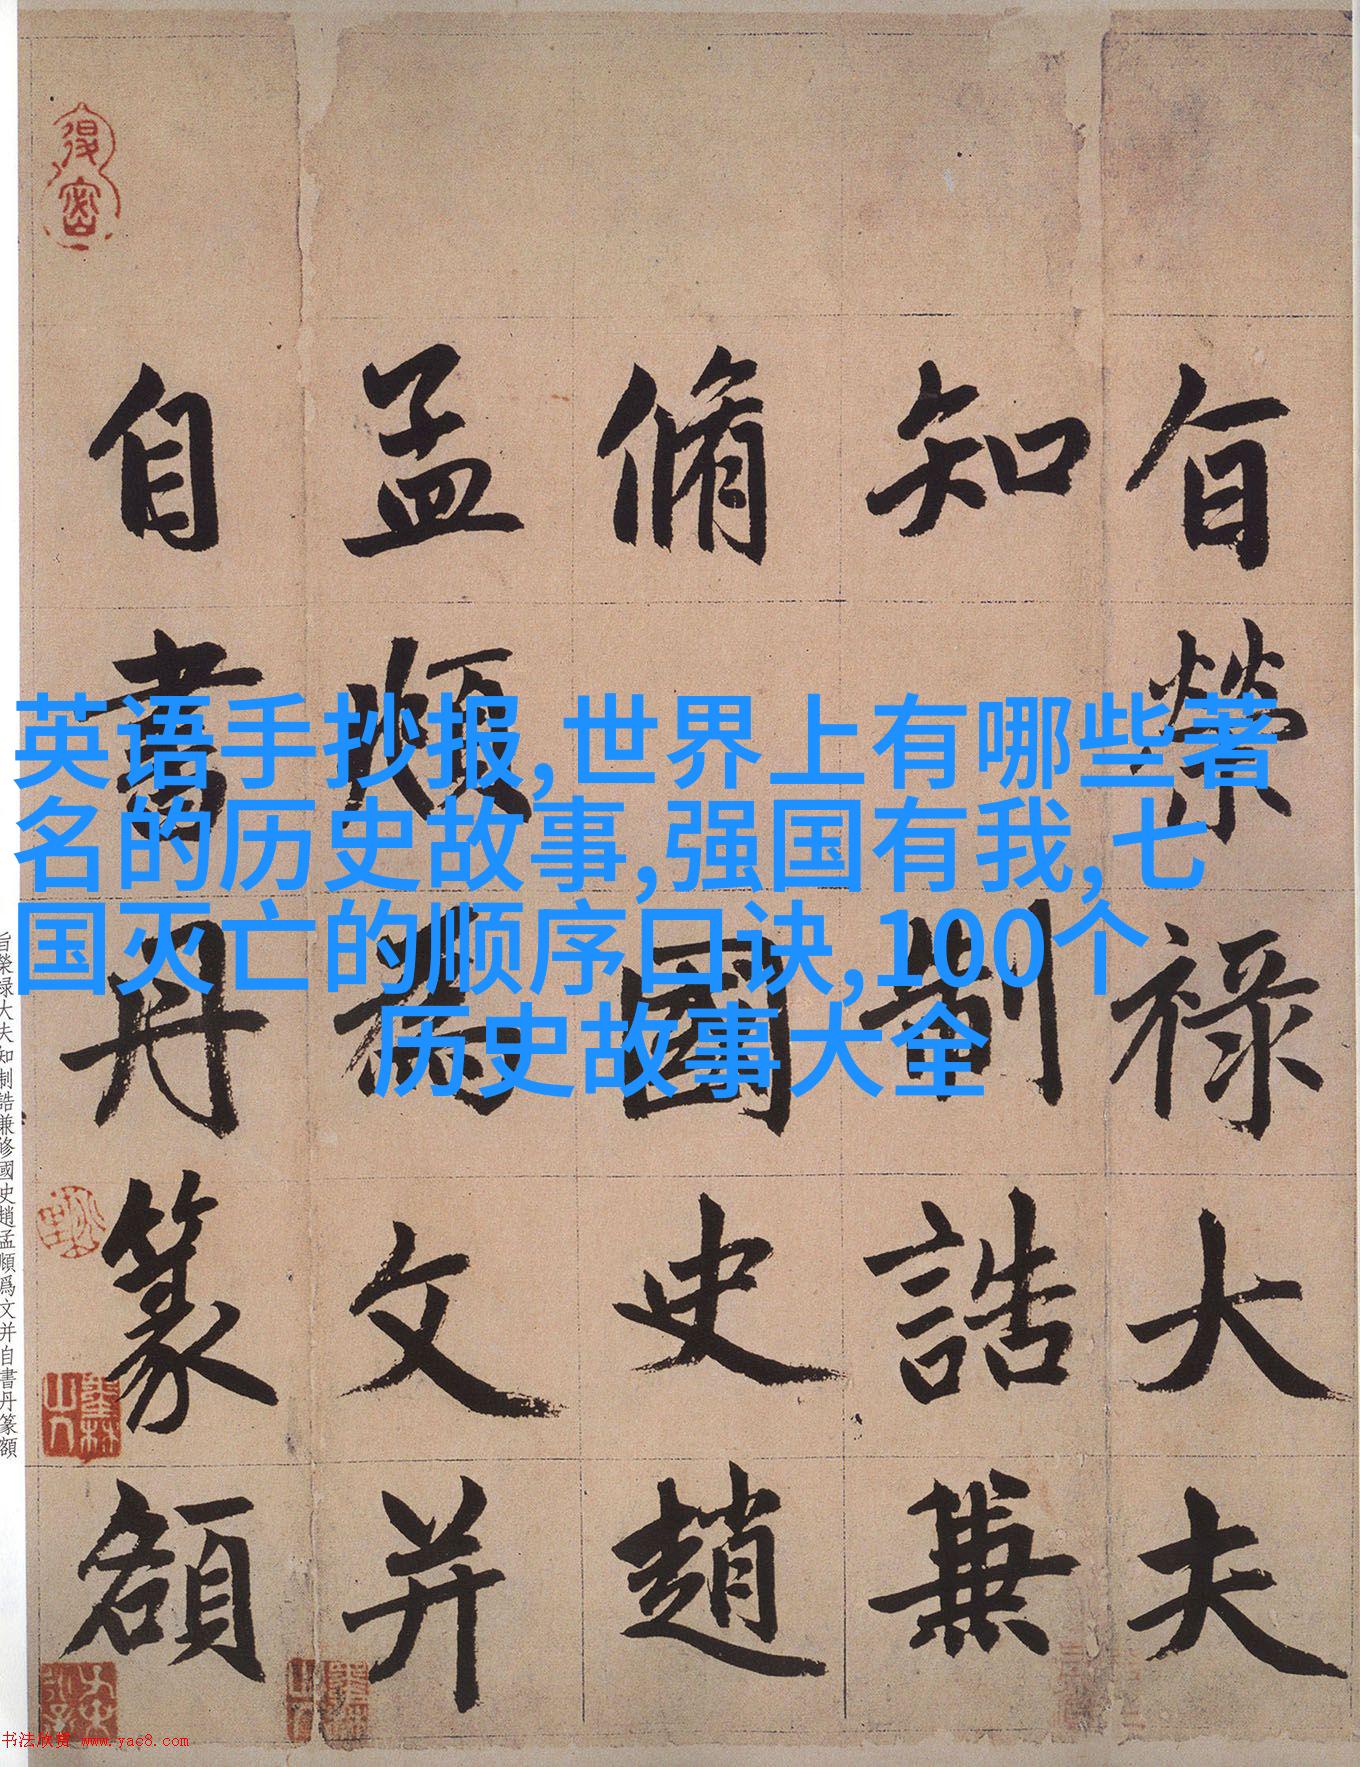 旨榮禄大夫
知制誥兼
脩國史趙
孟頫為文并
自書丹篆額
英语手抄报,世界上有哪些著
名的历史故事,强国有我,七
国灭亡的顺序口诀,100个
历史故事大全
旨榮禄大夫知制誥兼修國史趙孟頫爲文并自書丹篆額
书法欣赏 www.yac8.com